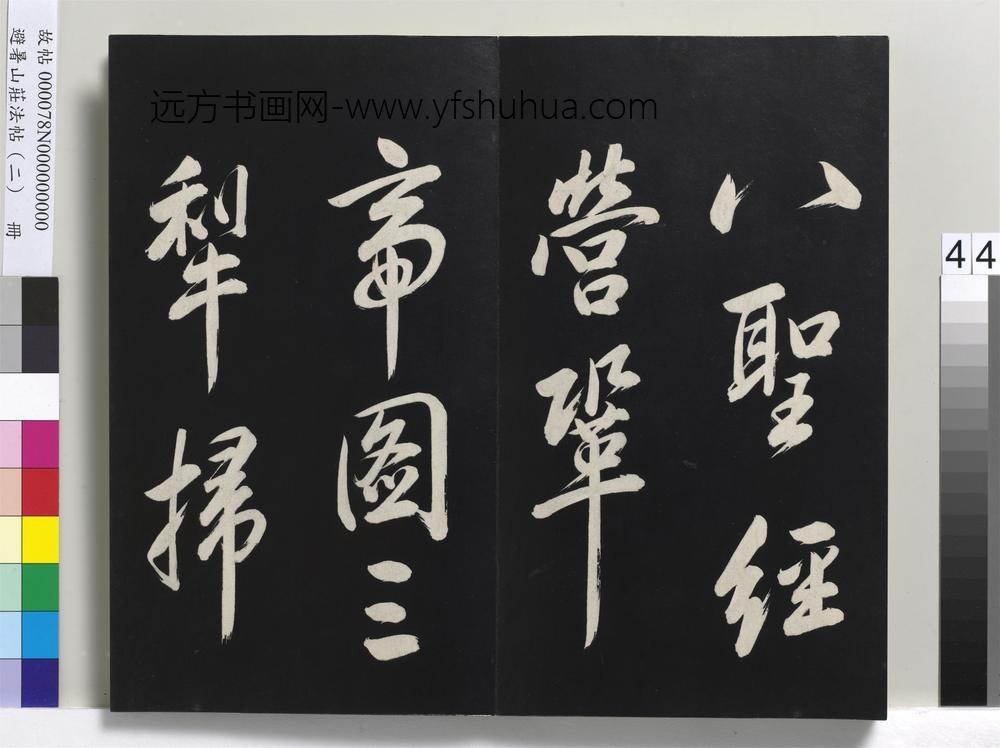 八聖經
營鞏
帝圖三
犂掃
远方书画网-www.yfshuhua.com
故帖 000078N000000000
避暑山莊法帖(二) 冊
44